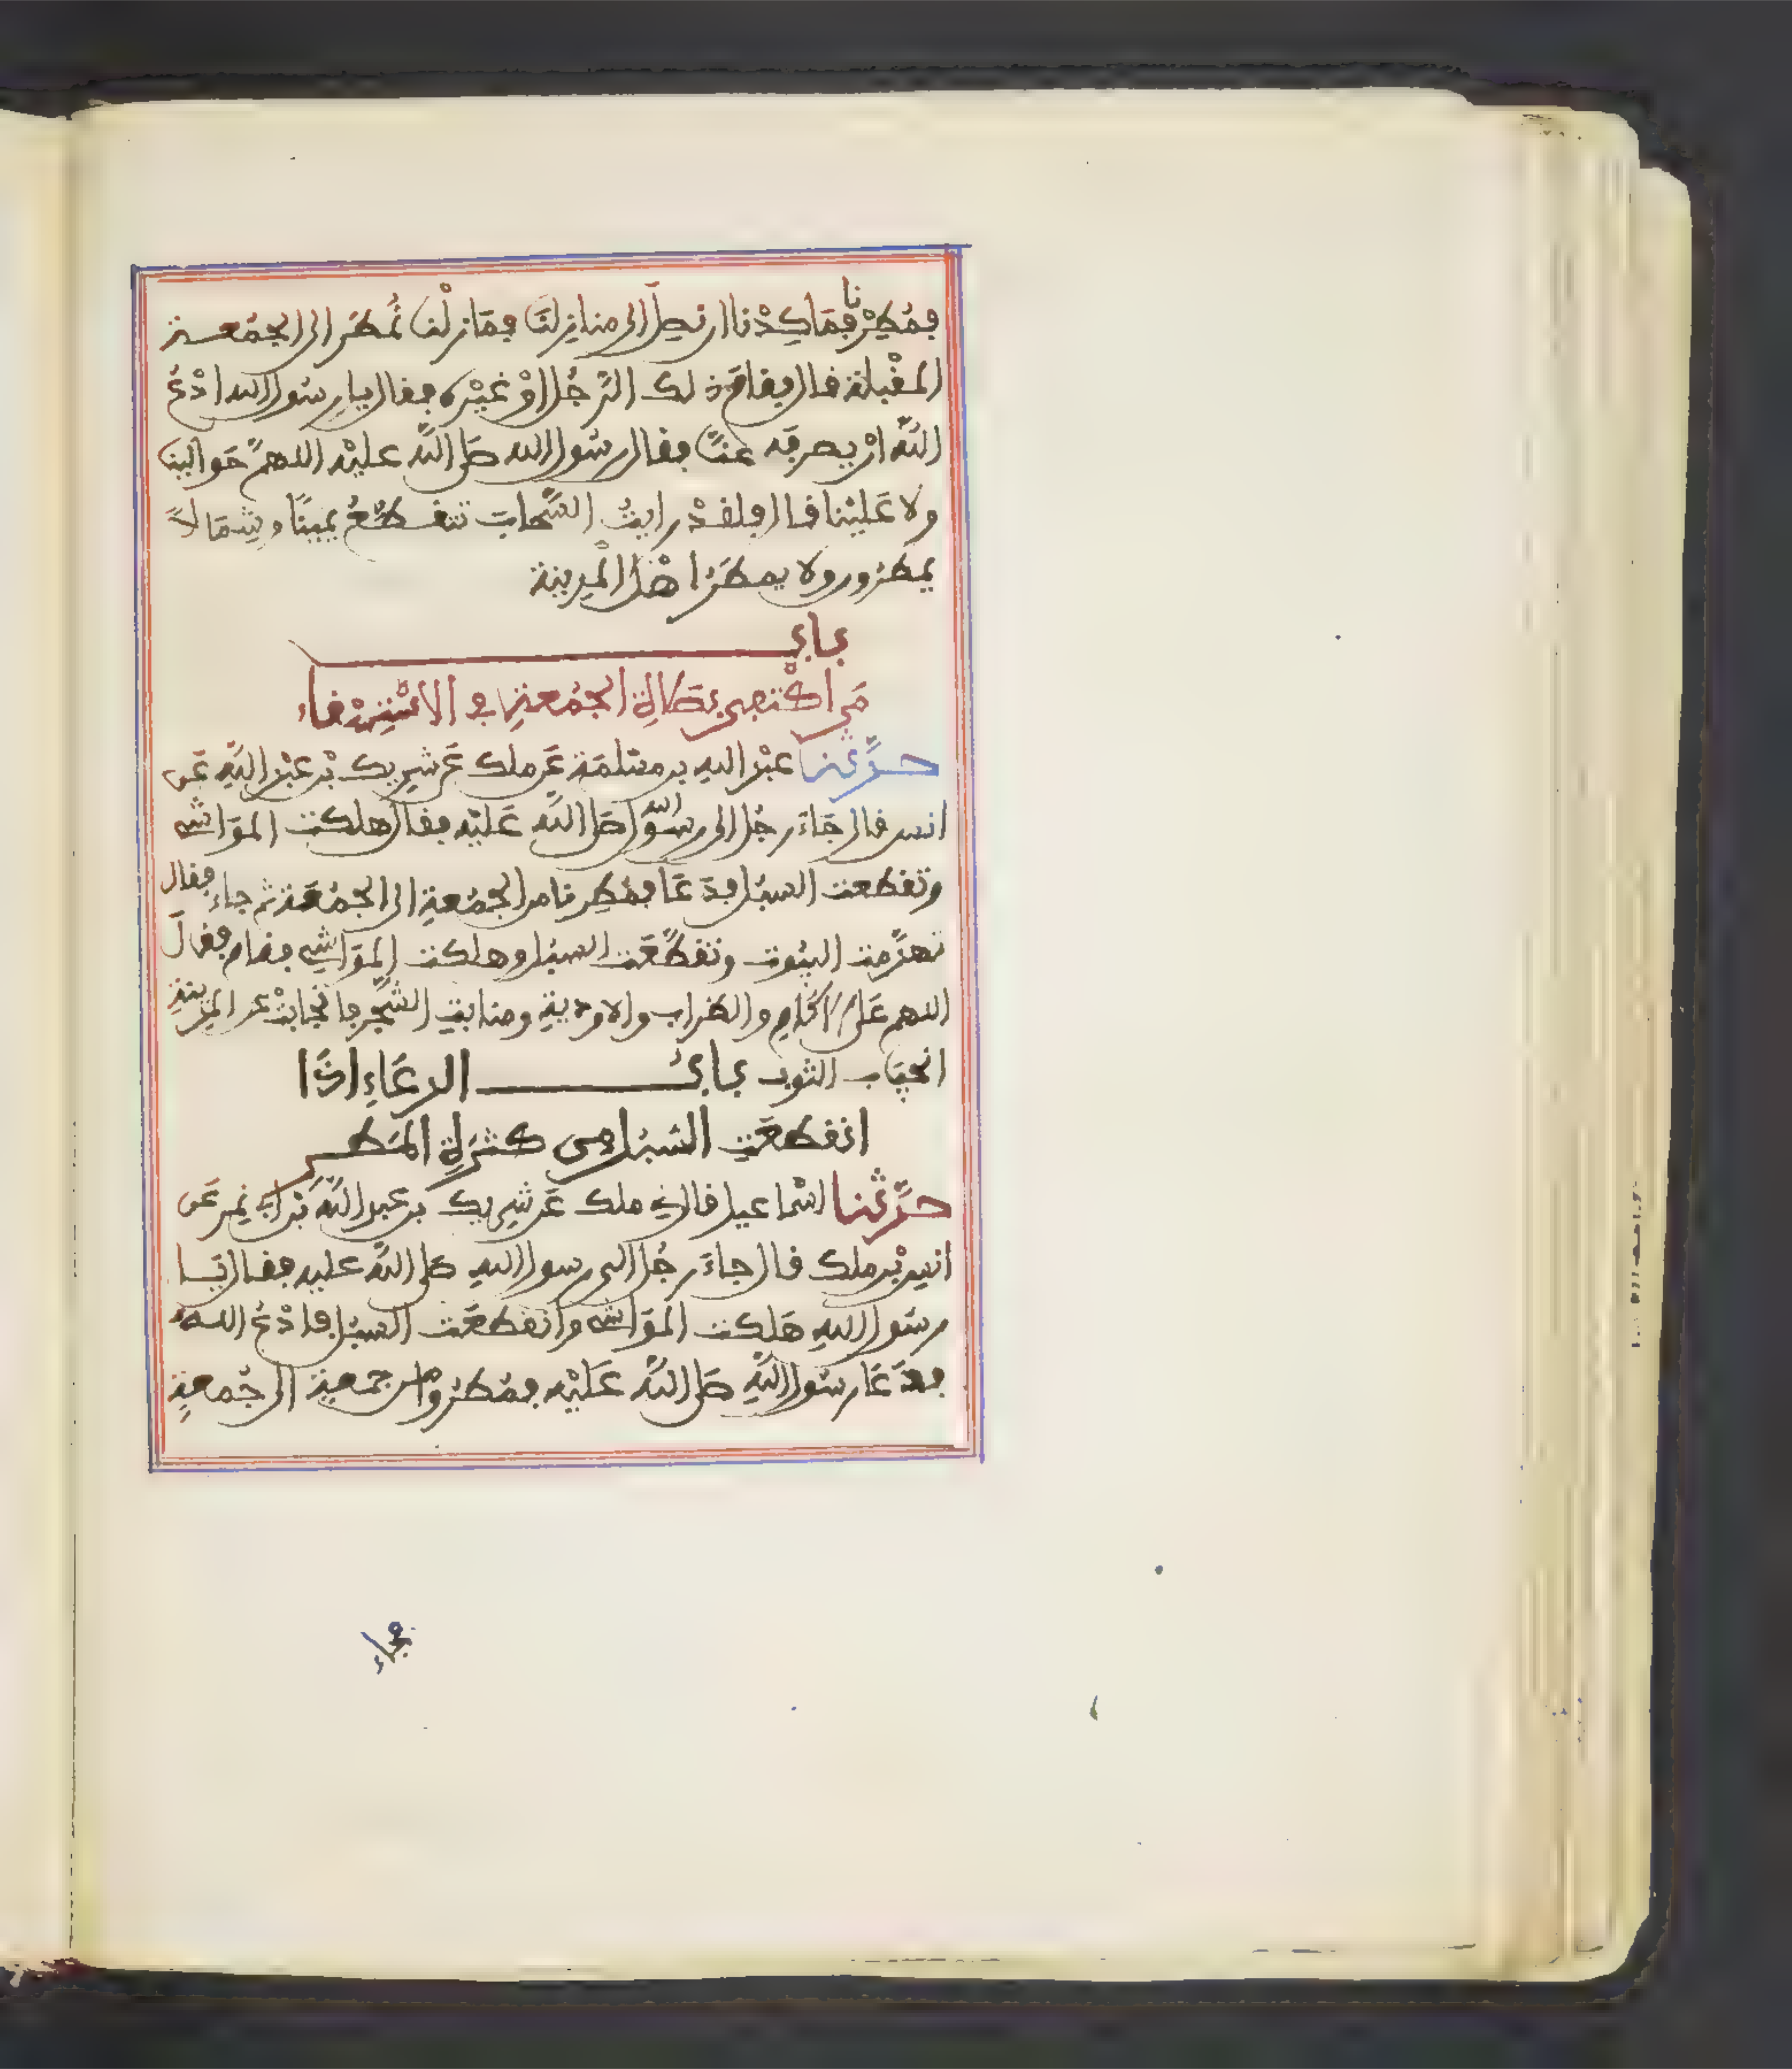 فمُطِرْنا فمَا كِدْنا ان نصِلَ الى منازِلنَا فمَا زلْنا نُمطَر الى الجمُعـة
المقْبلة قال فقامَ ذلك الرَّجُل اوْ غيْره فقال يا رسُول الله ادْعُ
اللَّه انْ يصرفَه عنَّا فقال رسُول الله صَلى اللَّه عليْه اللهمَّ حَوالينا
ولا عَليْنا قال فلقدْ رايتُ السَّحابَ تتقطَّعُ يمينًا وشِمَالاً
يمطرُون ولا يمطَرُ اهْل المْدينة
بابُ
مَن اكْتفى بصَلاةِ الجمُعةِ في الاسْتِسْقاء
حدَّثنا عبْد الله بن مسْلمَة عَن ملك عَن شَرِيك بْن عبْد اللَّه عَن
انس قال جَاءَ رجُل الى رسُول الله صَلى اللَّه عَليْه فقال هلكت المَوَاشي
وتقطعت السبُل فدَعَا فمُطِرنا من الجمُعةِ الى الجمُعَة ثم جاء فقال
تهدَّمت البيُوت وتقطَّعَت السبُل وهلكت المَوَاشي فقام فقالَ
اللهم عَلى الاكَامِ والظراب والاوديةِ ومنابتِ الشَّجر فانجابتْ عن المدِينةِ
انجيَاب الثوب بابُ الدعَاءِ اذَا
انقطعَتِ السُبُل مِن كثرةِ المَطـر
حدَّثنا اسْماعيل قال ني ملك عَن شَرِيك بْن عبد اللَّه بْن ابي نمِر عَن
انس بْن ملك قال جاءَ رجُل الى رسول اللهِ صَلى اللَّه عليه فقال يَـا
رسُول اللهِ هَلكت المَوَاشي وانقطعَت السبُل فادْعُ اللـهَ
فدَعَا رسُول اللَّهِ صَلى اللَّه عَليْه فمُطرُوا من جمعةٍ الى جُمعةٍ
فجاء